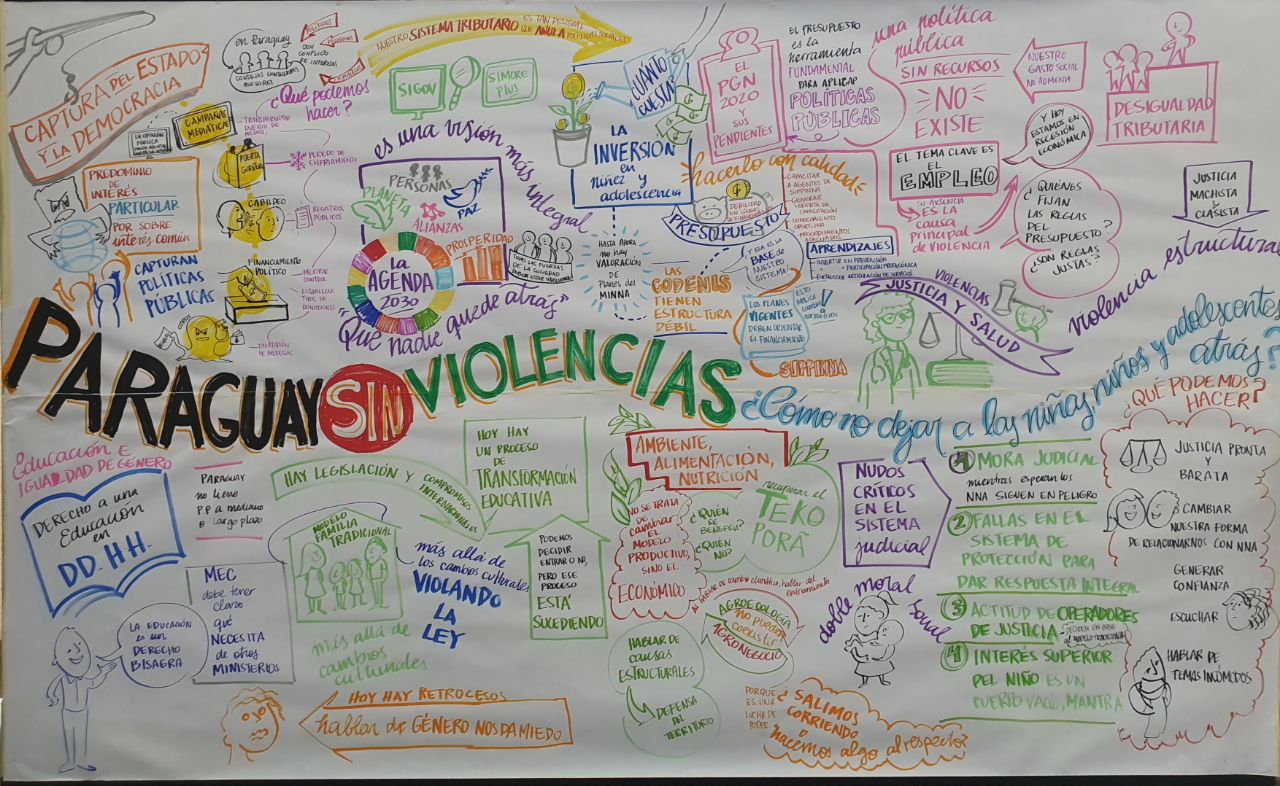 CAPTURA DEL ESTADO
Y LA DEMOCRACIA
en Paraguay
CON
CONFLICTO
DE INTERÉS
CONSEJOS CONSULTIVOS
ASESORES
POLÍTICOS
NUESTRO SISTEMA TRIBUTARIO ES TAN DESIGUAL
QUE ANULA POLÍTICAS SOCIALES
¿Qué podemos
hacer?
LA OPINIÓN
PÚBLICA
CAMPAÑAS
MEDIÁTICAS
TRANSPARENTAR
DUEÑOS DE
MEDIOS
PUERTA
GIRATORIA
PERIODO DE
ENFRIAMIENTO
CABILDEO
REGISTROS
PÚBLICOS
FINANCIAMIENTO
POLÍTICO
MEJORAR
CONTROL
ESTABLECER
TIPOS DE
DONADORES
DILATACIÓN
DE PROCESOS
PREDOMINIO
DE
INTERÉS
PARTICULAR
POR SOBRE
interés común
CAPTURAN
POLÍTICAS
PÚBLICAS
SIGOV
SIMORE
PLUS
es una visión más integral
PERSONAS
PLANETA
PAZ
ALIANZAS
PROSPERIDAD
LA
AGENDA
2030
"Que nadie quede atrás"
TODAS LAS FUERZAS
DE LA SOCIEDAD
¿CUÁNTO
CUESTA?
LA
INVERSIÓN
en
niñez y
adolescencia
HASTA AHORA
no hay
VALORACIÓN
DE
Planes del
MINNA
EL
PGN
2020
y sus
PENDIENTES
EL PRESUPUESTO
es la
herramienta
FUNDAMENTAL
PARA APLICAR
POLÍTICAS
PÚBLICAS
hacerlo con calidad
DEBILIDAD
EN LÍNEA
DE FINANCIAMIENTO
PRESUPUESTO
CAPACITAR
A AGENTES DE
SIPPINNA
GENERAR
OFERTA DE
CAPACITACIÓN
CONOCIMIENTO
OPORTUNO
PROCEDIMIENTOS
ADECUADOS
APRENDIZAJES
INVERTIR EN PREVENCIÓN
PARTICIPACIÓN PROTAGÓNICA
FORTALECER ARTICULACIÓN DE SERVICIOS
LAS
CODENIS
TIENEN
ESTRUCTURA
DÉBIL
Y ESA ES LA
BASE de
NUESTRO
SISTEMA
LOS PLANES
VIGENTES
DEBEN DEFENDER
EL FINANCIAMIENTO
ESTO
IMPLICA
cambios
normativos
SIPPINNA
una política
pública
SIN RECURSOS
NO
EXISTE
NUESTRO
GASTO SOCIAL
NO AUMENTA
DESIGUALDAD
TRIBUTARIA
Y HOY
ESTAMOS EN
RECESIÓN
ECONÓMICA
EL TEMA CLAVE ES
EL
EMPLEO
SU AUSENCIA
ES LA
causa
principal
DE VIOLENCIA
¿QUIÉNES
FIJAN
LAS REGLAS
DEL
PRESUPUESTO?
¿SON REGLAS
JUSTAS?
JUSTICIA
MACHISTA
&
CLASISTA
violencia estructural
VIOLENCIAS
JUSTICIA Y SALUD
PARAGUAY SIN VIOLENCIAS
¿Cómo no dejar a las niñas, niños y adolescentes
atrás?
Educación e
IGUALDAD DE GÉNERO
DERECHO a una
Educación
en
DD.HH.
PARAGUAY
no tiene
P.P a mediano
o largo plazo
LA EDUCACIÓN
es un
DERECHO
BISAGRA
MEC
debe tener
claro
qué
NECESITA
de otros
MINISTERIOS
HAY LEGISLACIÓN Y COMPROMISOS
INTERNACIONALES
MODELO
FAMILIA
TRADICIONAL
más allá de
cambios
culturales
más allá de
los cambios culturales
VIOLANDO
LA
LEY
HOY HAY
UN PROCESO
DE
TRANSFORMACIÓN
EDUCATIVA
PODEMOS
DECIDIR
ENTRAR O NO,
PERO ESE
PROCESO
ESTÁ
SUCEDIENDO
HOY HAY RETROCESOS
hablar de GÉNERO NOS DA MIEDO
AMBIENTE,
ALIMENTACIÓN,
NUTRICIÓN
NO SE TRATA
DE
cambiar
EL
MODELO
PRODUCTIVO,
SINO EL
ECONÓMICO
¿QUIÉN
SE
BENEFICIA?
¿QUIÉN
NO?
recuperar el
TEKO
PORÃ
AL HABLAR de cambio climático, hablar del
enfriamiento
AGROECOLOGÍA
no pueden
coexistir
AGRONEGOCIO
HABLAR DE
causas
ESTRUCTURALES
DEFENSA
DEL
TERRITORIO
PORQUE
ES UNA
LUCHA DE
PODER
¿SALIMOS
CORRIENDO
o
hacemos algo al respecto?
NUDOS
CRÍTICOS
EN EL
SISTEMA
judicial
doble moral
social
1 MORA JUDICIAL
mientras esperan los
NNA SIGUEN EN PELIGRO
2 FALLAS EN EL
SISTEMA DE
PROTECCIÓN PARA
DAR RESPUESTA INTEGRAL
3 ACTITUD DE OPERADORES
DE JUSTICIA
DECIDEN EN BASE
al MODELO TRADICIONAL
4 INTERÉS SUPERIOR
DEL NIÑO ES UN
CUERPO VACÍO, MANTRA
¿QUÉ PODEMOS
HACER?
JUSTICIA PRONTA
Y
BARATA
CAMBIAR
NUESTRA FORMA
DE RELACIONARNOS CON NNA
GENERAR
CONFIANZA
ESCUCHAR
HABLAR DE
TEMAS INCÓMODOS